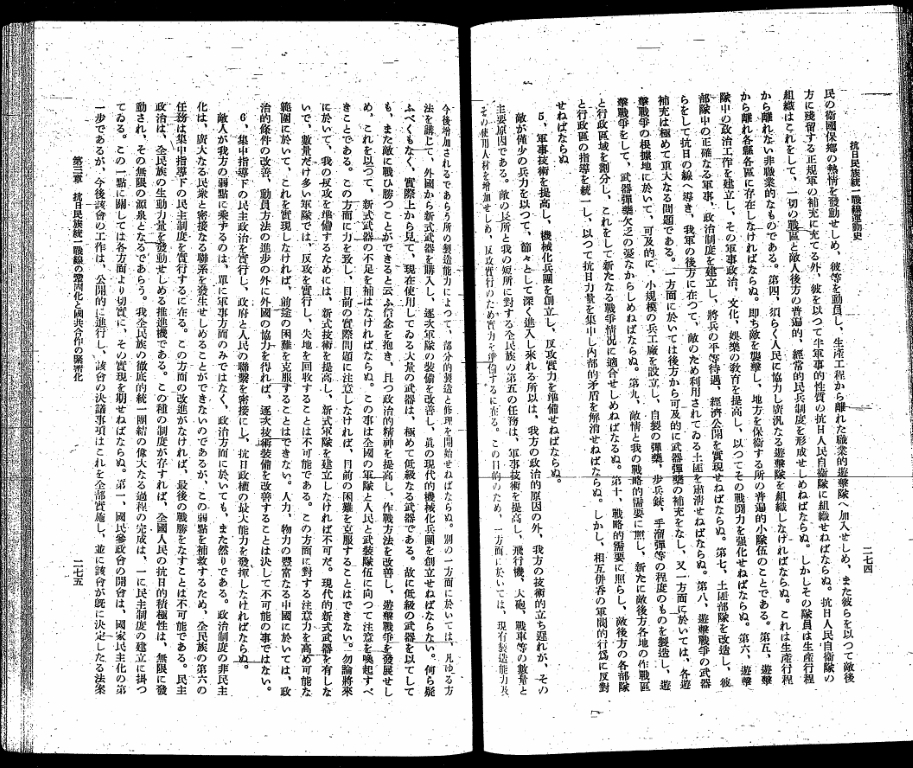 抗日民族統一戰線運動史
二七四
民の衞國保鄉の熱情を發動せしめ、彼等を動員し、生產工程から離れた職業的遊擊隊へ加入せしめ、また彼らを以つて敵後
方に殘留する正規軍の補充に充てる外、彼を以つて半軍事的性質の抗日人民自衞隊に組織せねばならぬ。抗日人民自衞隊の
組織はこれをして、一切の戰區と敵人後方の普遍的、經常的民兵制度を形成せしめねばならぬ。しかしその隊員は生產行程
から離れたい非職業的なものである。第四、須らく人民に協力し廣汎なる遊擊隊を組織しなければならぬ。これは生產行程
から離れ各縣各區に存在しなければならぬ。即ち敵を襲擊し、地方を保衞する所の普遍的小隊伍のことである。第五、遊擊
隊中の政治工作を建立し、その軍事政治、文化、娛樂の敎育を提高し、以つてその戰鬪力を强化せねばならぬ。第六、遊擊
部隊中の正確なる軍事、政治制度を建立し、將兵の平等待遇、經濟公開を實現せねばならぬ。第七、土匪部隊を改造し、彼
らをして抗日の線へ導き、我軍の後方に在つて、敵のため利用されてゐる土匪を肅清せねばならぬ。第八、遊擊戰爭の武器
補充は極めて重大なる問題である。一方面に於いては後方から可及的に武器彈藥の補充をなし、又一方面に於いては、各遊
擊戰爭の根據地に於いて、可及的に、小規模の兵工廠を設立し、自製の彈藥、步兵銃、手溜彈等の程度のものを製造し、遊
擊戰爭をして、武器彈藥欠乏の憂なからしめねばならぬ。第九、敵情と我の戰略的需要に照し、新たに敵後方各地の作戰區
と行政區域を劃分し、これをして新たなる戰爭情況に適合せしめねばなるぬ。第十、戰略的需要に照らし、敵後方の各部隊
と行政區の指導を統一し、以つて抗日力量を集中し內部的矛盾を解消せねばならぬ。しかし、相互併呑の軍閥的行爲に反對
せねばならぬ
5、軍事技術を提高し、機械化兵團を創立し、反攻實力を準備せねばならぬ。
敵が僅少の兵力を以つて、節々として深く進入し來れる所以は、我方の政治的原因の外、我方の技術的立ち遲れが、その
主要原因である。敵の長所と我の短所に對する全民族の第五の任務は、軍事技術を提高し、飛行機、大砲、戰車等の數量と
その使用人材を增加せしめ、反攻實行のため實力を準備するに在る。この目的のため、一方面に於いては、現有製造能力及
今後增加されるであらう所の製造能力によつて、部分的製造と修理を開始せねばならぬ。別の一方面に於いては、凡ゆる方
法を講じて、外國から新式武器を購入し、逐次軍隊の裝備を改善し、眞の現代的機械化兵團を創立せねばならない。何ら疑
ふべくもなく、實際上から見て、現在使用してゐる大量の武器は、極めて低級なる武器である。故に低級の武器を以てして
も、また敵に戰ひ勝つことができると云ふ信念を抱き、且つ政治的精神を提高し、作戰方法を改善し、遊擊戰爭を發展せし
め、これを以つて、新式武器の不足を補はなければならぬ。この事は全國の軍隊と人民と武裝隊伍に向つて注意を喚起すべ
きことである。この方面に力を致し、目前の實際問題に注意しなければ、目前の困難を克服することはできない。勿論將來
に於いて、我の反攻を準備するためには、新式技術を提高し、新式軍隊を建立しなければ不可だ。現代的新式武器を有しな
いで、數量だけ多い軍隊では、反攻を實行し、失地を回收することは不可能である。この方面に對する注意力を高め可能な
範圍に於いて、これを實現しなければ、前途の困難を克服することはできない。人力、物力の豐富なる中國に於いては、政
治的條件の改善、動員方法の進步の外に外國の協力を得れば、逐次技術裝備を改善することは決して不可能の事ではない。
6、集中指導下の民主政治を實行し、政府と人民の聯繫を密接にし、抗日政權の最大能力を發揮しなければならぬ。
敵人が我方の弱點に乘ずるのは、單に軍事方面のみではなく、政治方面に於いても、また然りである。政治制度の非民主
化は、廣大なる民衆と密接なる聯系を發生せしめることができないのであるが、この弱點を補救するため、全民族の第六の
任務は集中指導下の民主制度を實行するに在る。この方面の改進がなければ、最後の戰勝をなすことは不可能である。民主
政治は、全民族の生動力量を發動せしめる推進機である。この種の制度が存すれば、全國人民の抗日的積極性は、無限に發
動され、その無限の源泉となるであらう。我全民族の徹底的統一團結の偉大なる過程の完成は、一に民主制度の建立に掛つ
てゐる。この一點に關しては各方面より切實に、その實現を期せねばならぬ。第一、國民參政會の開會は、國家民主化の第
一步であるが、今後該會の工作は、公開的に進行し、該會の決議事項はこれを全部實施し、並に該會が既に決定したる法案
第三章 抗日民族統一戰線の鞏固化と國共合作の緊密化
二七五